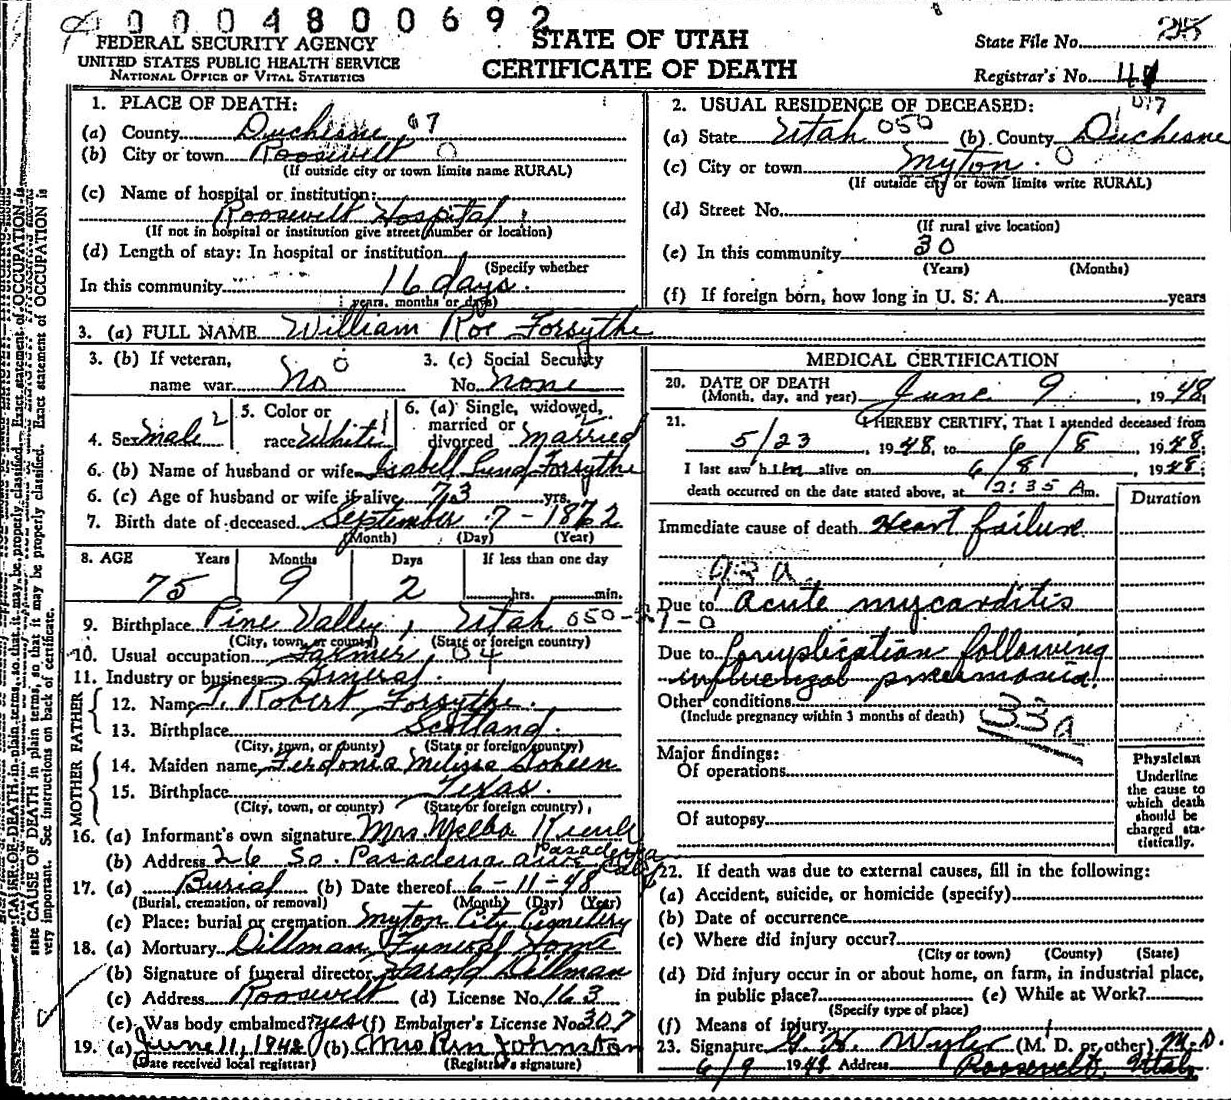 0 0 0 4 8 0 0 6 9 2
FEDERAL SECURITY AGENCY
UNITED STATES PUBLIC HEALTH SERVICE
NATIONAL OFFICE OF VITAL STATISTICS
STATE OF UTAH
CERTIFICATE OF DEATH
State File No.
Registrar's No.
1. PLACE OF DEATH:
(a) County Duchesne 07
(b) City or town Roosevelt 0
(If outside city or town limits name RURAL)
(c) Name of hospital or institution:
Roosevelt Hospital
(If not in hospital or institution give street number or location)
(d) Length of stay: In hospital or institution
(Specify whether
In this community 16 days.
years, months or days)
2. USUAL RESIDENCE OF DECEASED:
(a) State Utah 050 (b) County Duchesne
(c) City or town Myton. 0
(If outside city or town limits write RURAL)
(d) Street No.
(If rural give location)
(e) In this community 30
(Years) (Months)
(f) If foreign born, how long in U. S. A. years
3. (a) FULL NAME William Roe Forsythe
3. (b) If veteran, name war No 0
3. (c) Social Security No. none
4. Sex Male 2
5. Color or race White 1
6. (a) Single, widowed, married or divorced Married
6. (b) Name of husband or wife Isabell Lund Forsythe
6. (c) Age of husband or wife if alive 73 yrs.
7. Birth date of deceased September 7 - 1872
(Month) (Day) (Year)
8. AGE Years Months Days If less than one day
75 9 2 hrs. min.
9. Birthplace Pine Valley, Utah 050-
(City, town, or county) (State or foreign country)
10. Usual occupation Farmer, 04
11. Industry or business General.
FATHER
12. Name T. Robert Forsythe.
13. Birthplace Scotland.
(City, town, or county) (State or foreign country)
MOTHER
14. Maiden name Melissa
15. Birthplace Texas.
(City, town, or county) (State or foreign country)
16. (a) Informant's own signature Mrs. Melba
(b) Address 26 So Pasadena ave Pasadena Calif
17. (a) Burial (b) Date thereof 6-11-48
(Burial, cremation, or removal) (Month) (Day) (Year)
(c) Place: burial or cremation Myton City Cemetery
18. (a) Mortuary Dillman Funeral Home
(b) Signature of funeral director Harold Dillman
(c) Address Roosevelt (d) License No. 163
(e) Was body embalmed? yes (f) Embalmer's License No. 307
19. (a) June 11, 1948 (b) Mrs Ren Johnston
(Date received local registrar) (Registrar's signature)
MEDICAL CERTIFICATION
20. DATE OF DEATH
(Month, day, and year) June 9, 1948
21. I HEREBY CERTIFY, That I attended deceased from
5/23, 1948, to 6/8, 1948.
I last saw him alive on 6/8, 1948.
death occurred on the date stated above, at 12:35 A m.
Duration
Immediate cause of death Heart failure
93a
Due to acute myocarditis
1-0
Due to Complication following
influenzal pneumonia!
Other conditions
(Include pregnancy within 3 months of death) 33a
Major findings:
Of operations
Of autopsy
Physician
Underline
the cause to
which death
should be
charged sta-
tistically.
22. If death was due to external causes, fill in the following:
(a) Accident, suicide, or homicide (specify)
(b) Date of occurrence
(c) Where did injury occur?
(City or town) (County) (State)
(d) Did injury occur in or about home, on farm, in industrial place,
in public place? (e) While at Work?
(Specify type of place)
(f) Means of injury
23. Signature G. H. Wyler (M. D. or other) M.D.
6/9 1948 Address Roosevelt, Utah
state CAUSE OF DEATH in plain terms, so that it may be properly classified. Exact statement of OCCUPATION is
very important. See instructions on back of certificate.